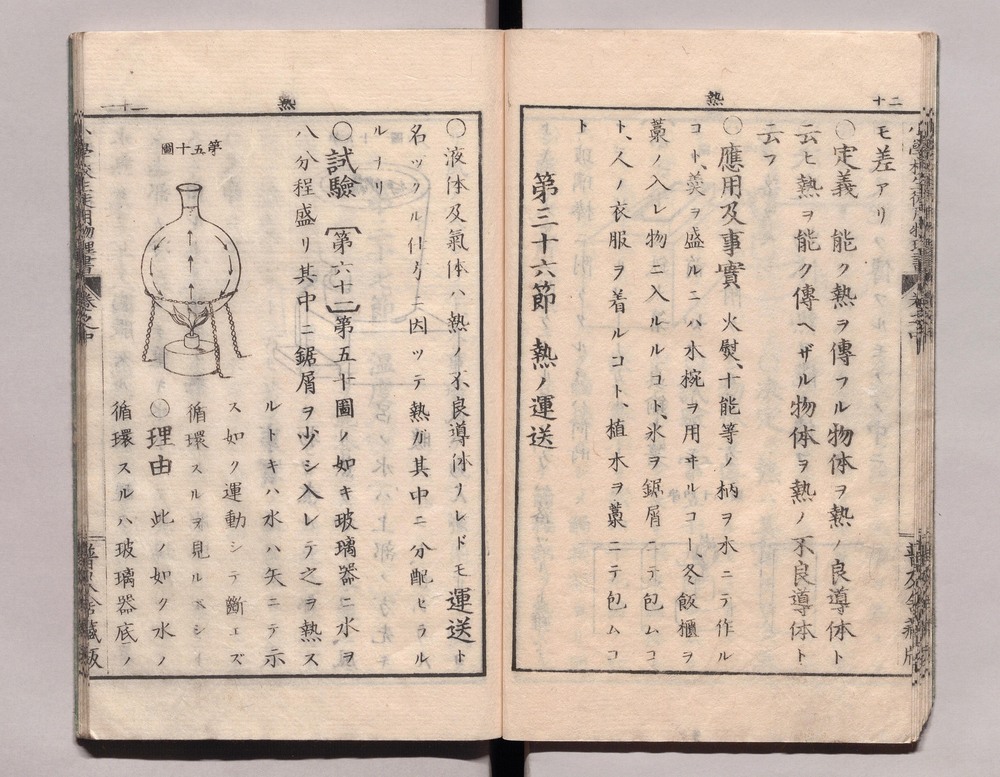 熱
二十
モ差アリ
○定義 能ク熱ヲ傳フル物体ヲ熱ノ良導体ト
云ヒ熱ヲ能ク傳ヘザル物体ヲ熱ノ不良導体ト
云フ
○應用及事實 火熨、十能等ノ柄ヲ木ニテ作ル
コト、羮ヲ盛ルニハ木椀ヲ用ヰルコト、冬飯櫃ヲ
藁ノ入レ物ニ入ルルコト、氷ヲ鋸屑ニテ包ムコ
ト、人ノ衣服ヲ着ルコト、植木ヲ藁ニテ包ムコ
ト
第三十六節 熱ノ運送
熱
二十一
○液体及氣体ハ熱ノ不良導体ナレドモ運送ト
名ヅクル仕方ニ因ッテ熱ガ其中ニ分配セラル
ルナリ
○試驗〔第六十二〕第五十圖ノ如キ玻璃器ニ水ヲ
八分程盛リ其中ニ鋸屑ヲ少シ入レテ之ヲ熱ス
ルトキハ水ハ矢ニテ示
ス如ク運動シテ斷エズ
循環スルヲ見ルベシ
○理由 此ノ如ク水ノ
循環スルハ玻璃器底ノ
第五十圖
小學校生徒用物理書
卷之中
普及舍藏版